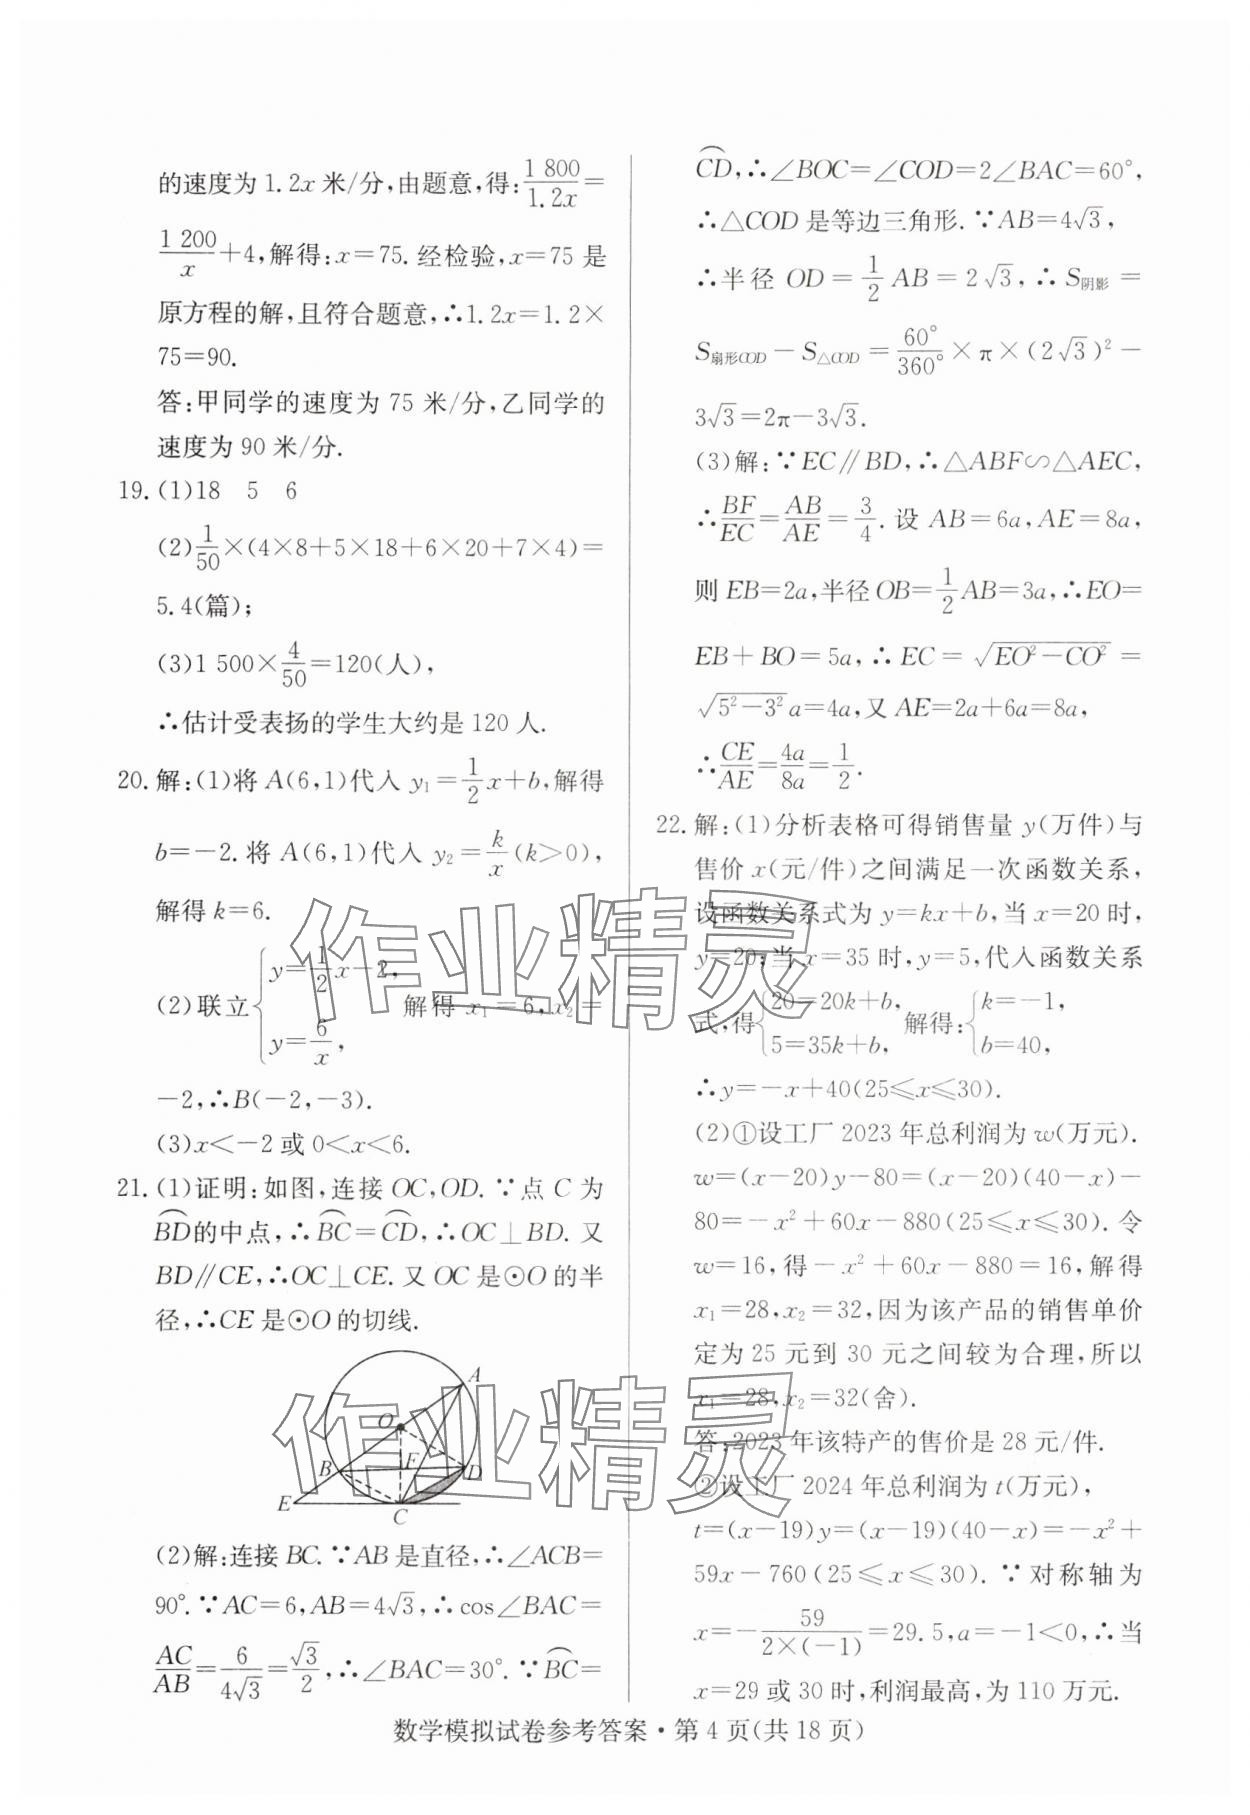 的速度为 1.2x 米/分,由题意,得:1 800/1.2x=
1 200/x+4,解得:x=75. 经检验,x=75 是
原方程的解,且符合题意,∴1.2x=1.2×
75=90.
答:甲同学的速度为 75 米/分,乙同学的
速度为 90 米/分.
19. (1)18 5 6
(2)1/50×(4×8+5×18+6×20+7×4)=
5.4(篇);
(3)1 500×4/50=120(人),
∴估计受表扬的学生大约是 120 人.
20. 解:(1)将 A(6,1)代入 y₁=1/2x+b,解得
b=-2. 将 A(6,1)代入 y₂=k/x(k>0),
解得 k=6.
(2)联立{y=1/2x-2, y=6/x, 解得 x₁=6,x₂=
-2,∴B(-2,-3).
(3)x<-2 或 0<x<6.
21. (1)证明:如图,连接 OC,OD. ∵点 C 为
⌒BD的中点,∴⌒BC=⌒CD,∴OC⊥BD. 又
BD∥CE,∴OC⊥CE. 又 OC 是⊙O 的半
径,∴CE 是⊙O 的切线.
A
O
B F D
E
C
(2)解:连接 BC. ∵AB 是直径,∴∠ACB=
90°. ∵AC=6,AB=4√3,∴cos∠BAC=
AC/AB=6/4√3=√3/2,∴∠BAC=30°. ∵⌒BC=
⌒CD,∴∠BOC=∠COD=2∠BAC=60°,
∴△COD 是等边三角形. ∵AB=4√3,
∴半径 OD=1/2AB=2√3,∴S阴影=
S扇形COD-S△COD=60°/360°×π×(2√3)²-
3√3=2π-3√3.
(3)解:∵EC∥BD,∴△ABF∽△AEC,
∴BF/EC=AB/AE=3/4. 设 AB=6a,AE=8a,
则 EB=2a,半径 OB=1/2AB=3a,∴EO=
EB+BO=5a,∴EC=√(EO²-CO²)=
√(5²-3²)a=4a,又 AE=2a+6a=8a,
∴CE/AE=4a/8a=1/2.
22. 解:(1)分析表格可得销售量 y(万件)与
售价 x(元/件)之间满足一次函数关系,
设函数关系式为 y=kx+b,当 x=20 时,
y=20;当 x=35 时,y=5,代入函数关系
式,得{20=20k+b, 5=35k+b, 解得:{k=-1, b=40,
∴y=-x+40(25≤x≤30).
(2)①设工厂 2023 年总利润为 w(万元).
w=(x-20)y-80=(x-20)(40-x)-
80=-x²+60x-880(25≤x≤30). 令
w=16,得-x²+60x-880=16,解得
x₁=28,x₂=32,因为该产品的销售单价
定为 25 元到 30 元之间较为合理,所以
x₁=28,x₂=32(舍).
答:2023 年该特产的售价是 28 元/件.
②设工厂 2024 年总利润为 t(万元),
t=(x-19)y=(x-19)(40-x)=-x²+
59x-760(25≤x≤30). ∵对称轴为
x=-59/2×(-1)=29.5,a=-1<0,∴当
x=29 或 30 时,利润最高,为 110 万元.
数学模拟试卷参考答案·第 4 页(共 18 页)
作业精灵
作业精灵